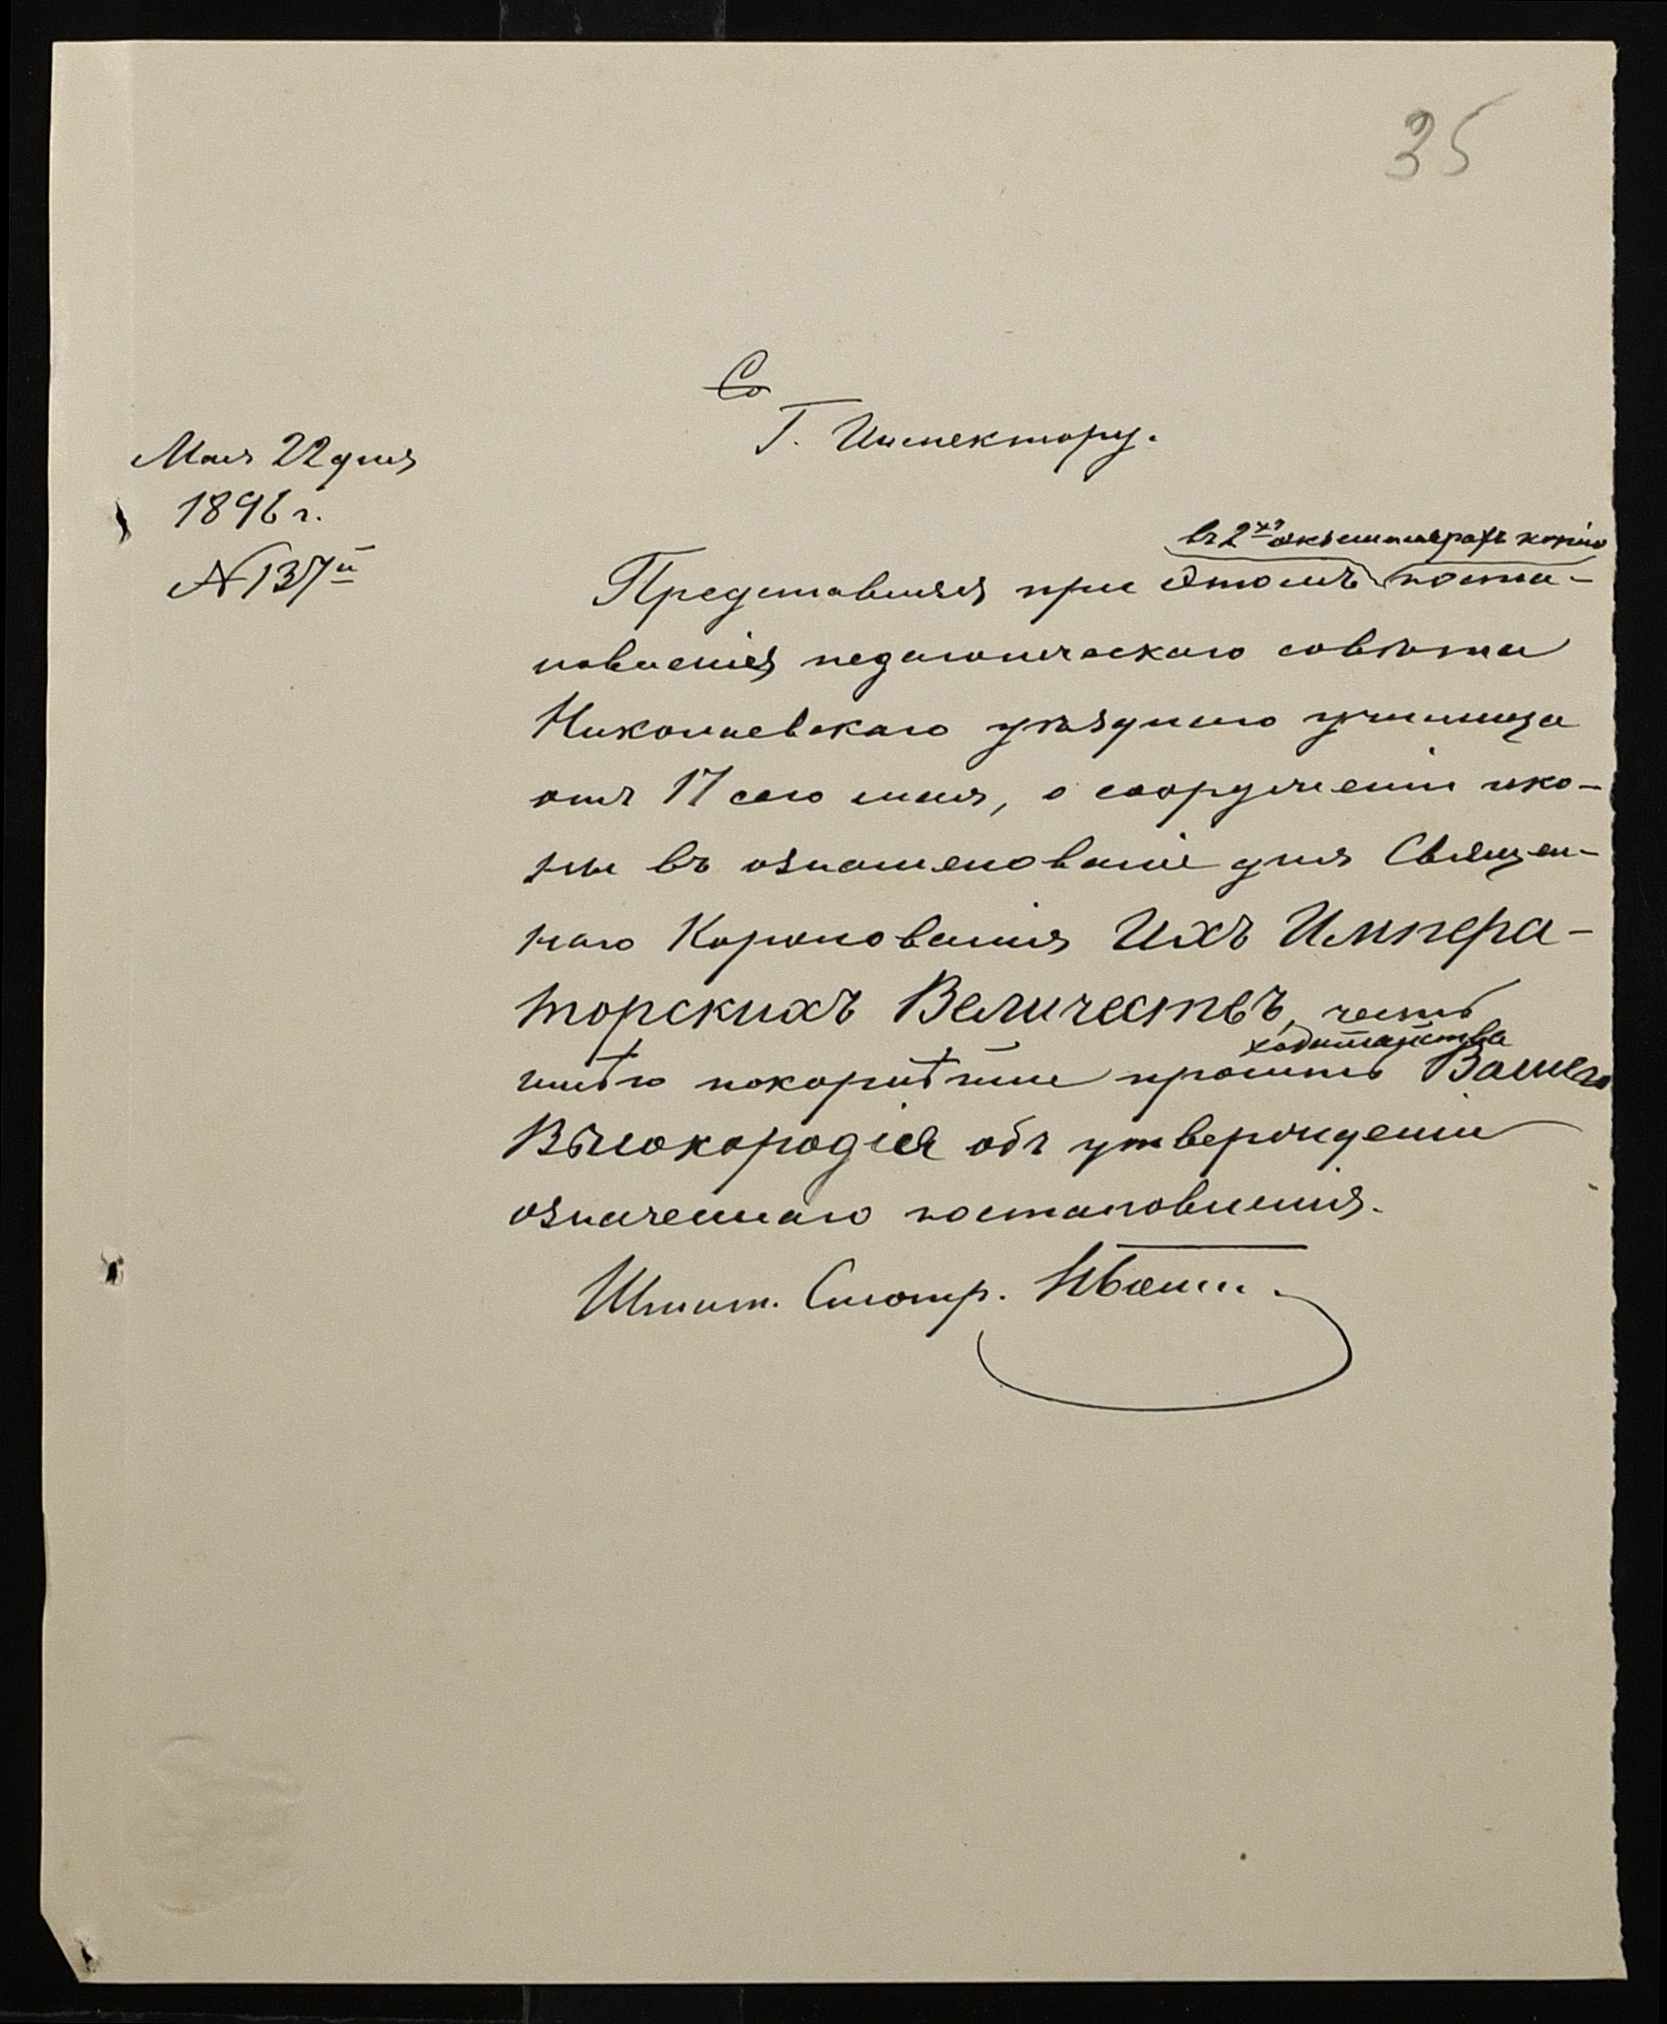 35
Со
Г. Инспектору.
Мая 22 дня
1896 г.
№ 137й
въ 2хъ экземплярахъ копію
Представляя при этомъ поста-
новленія педагогическаго совѣта
Николаевскаго уѣзднаго училища
отъ 17 сего мая, о сооруженіи ико-
ны въ ознаменованіе дня Священ-
наго Коронованія Ихъ Импера-
торскихъ Величествъ, честь
ходатайства
имѣю покорнѣйше просить Вашего
Высокородія объ утвержденіи
означеннаго постановленія.
Штатн. Смотр.